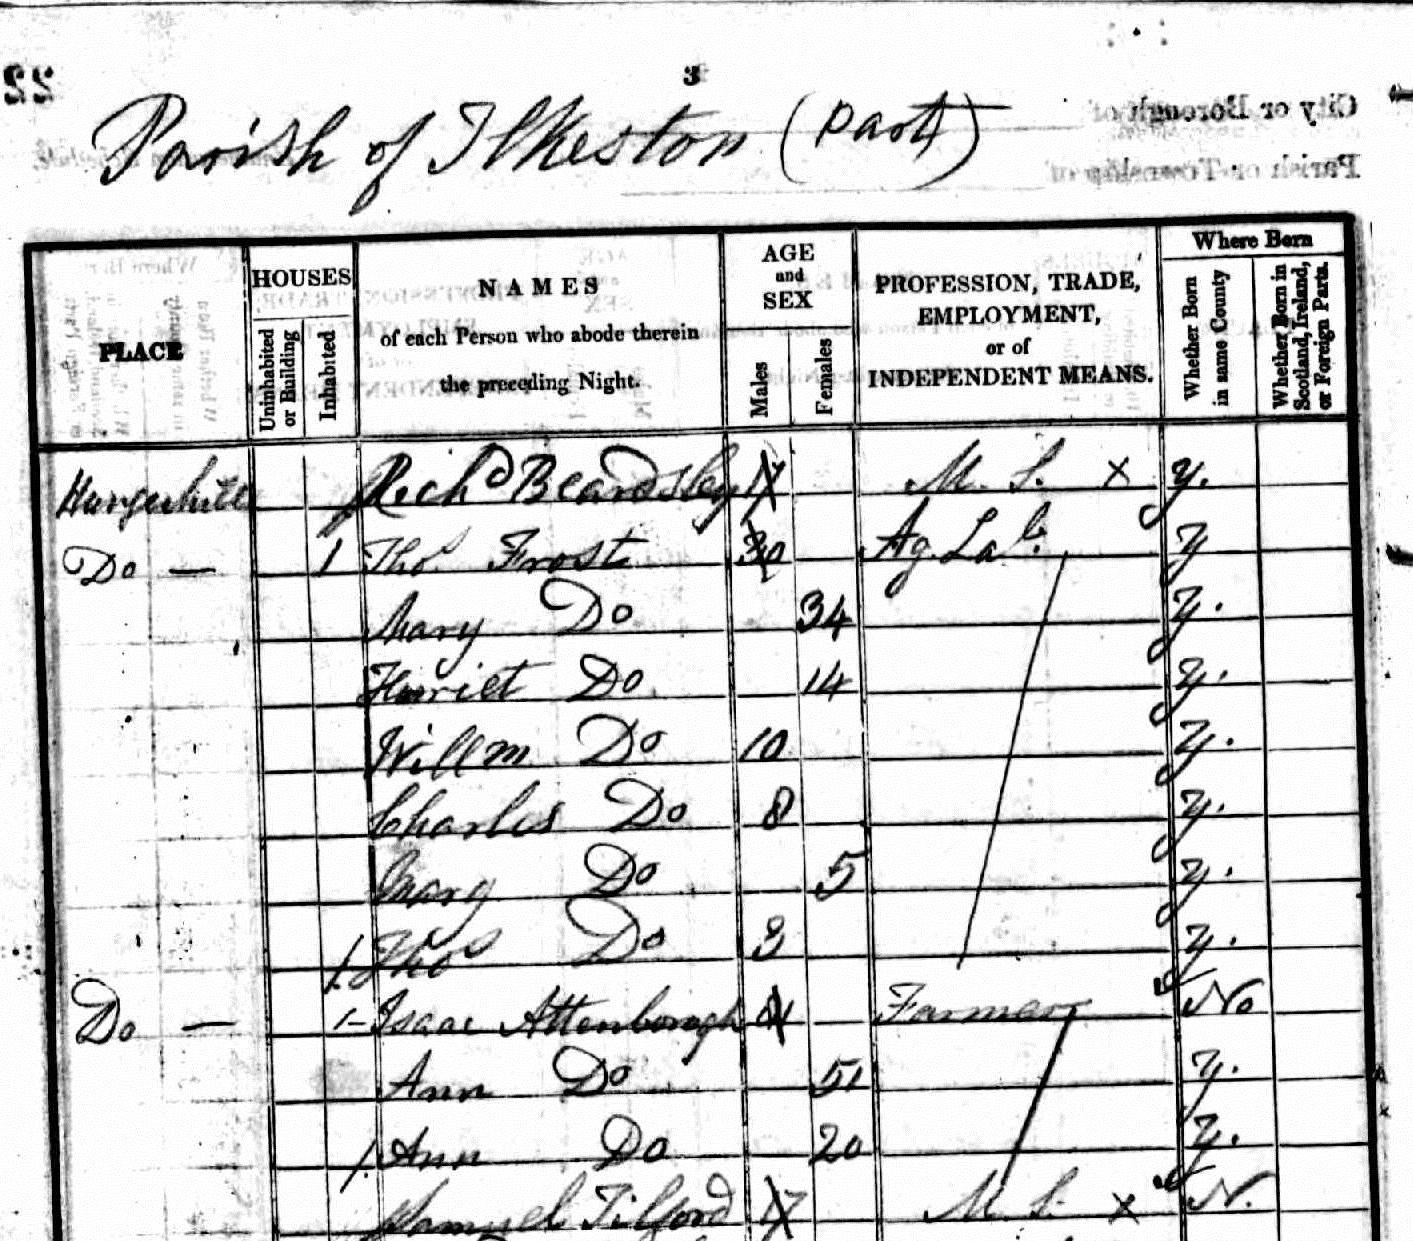 3
22
Parish of Ilkeston (Part)
City or Borough of
Parish or Township of
PLACE
HOUSES
Uninhabited or Building
Inhabited
NAMES
of each Person who abode therein
the preceding Night.
AGE
and
SEX
Males
Females
PROFESSION, TRADE,
EMPLOYMENT,
or of
INDEPENDENT MEANS.
Where Born
Whether Born in same County
Whether Born in Scotland, Ireland, or Foreign Parts.
Richd Beardsley 17 M. S. x y.
Do — 1 Thos Frost 30 Ag. Lab. y
Mary Do 34 y.
Harriet Do 14 y.
Willm Do 10 y.
Charles Do 8 y.
Mary Do 5 y.
Thos Do 3 y.
Do — 1 Isaac Attenborough Farmer No
Ann Do 51 y.
Ann Do 20 y.
Samuel Tilford 17 M. S. x N.